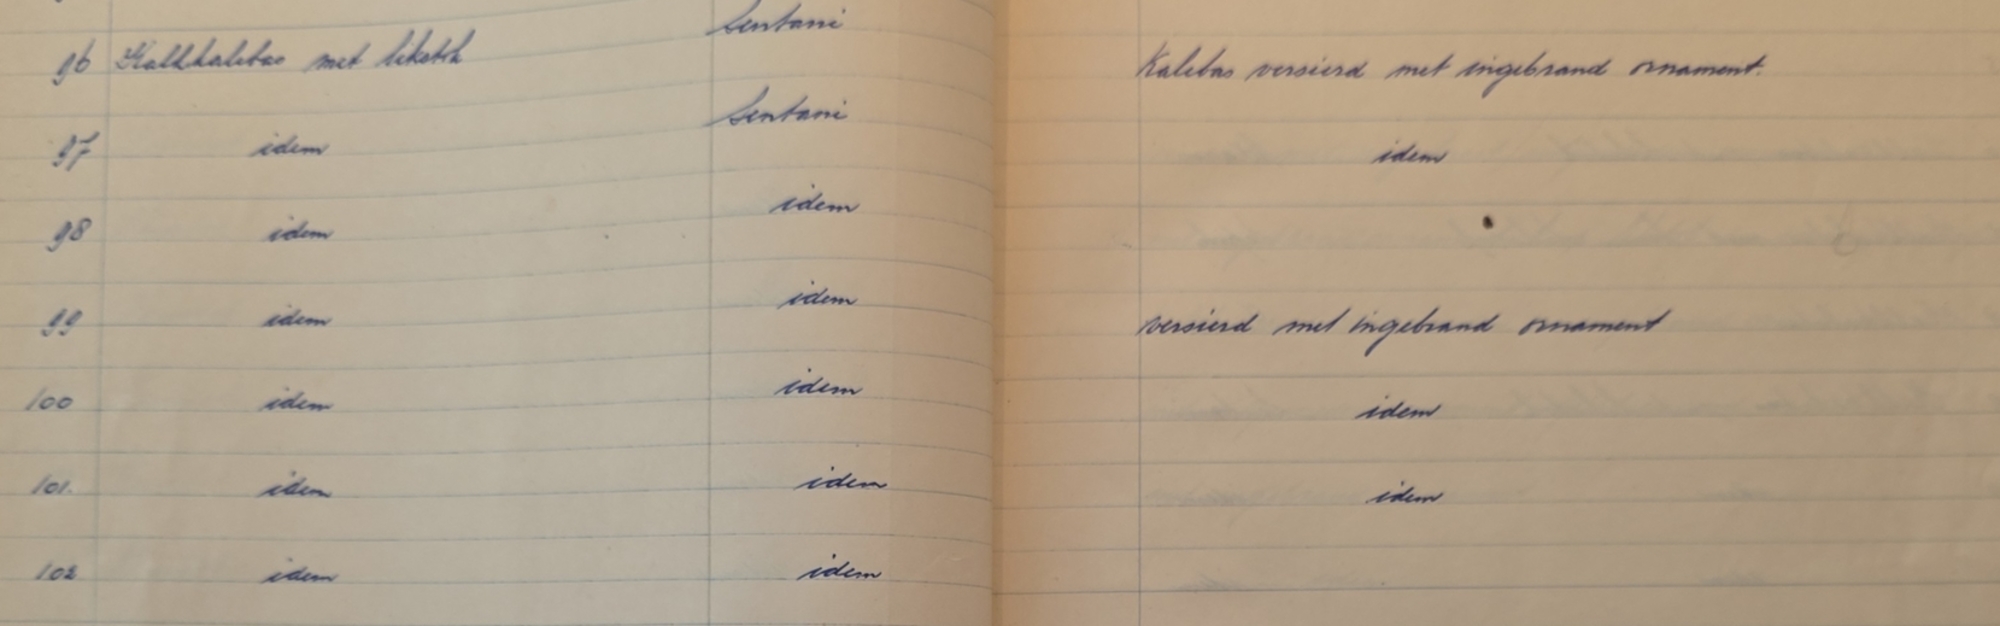 96 Kalkkalebas met likstok Sentani Kalebas versierd met ingebrand ornament.
97 idem Sentani idem
98 idem idem
99 idem idem versierd met ingebrand ornament
100 idem idem idem
101. idem idem idem
102 idem idem